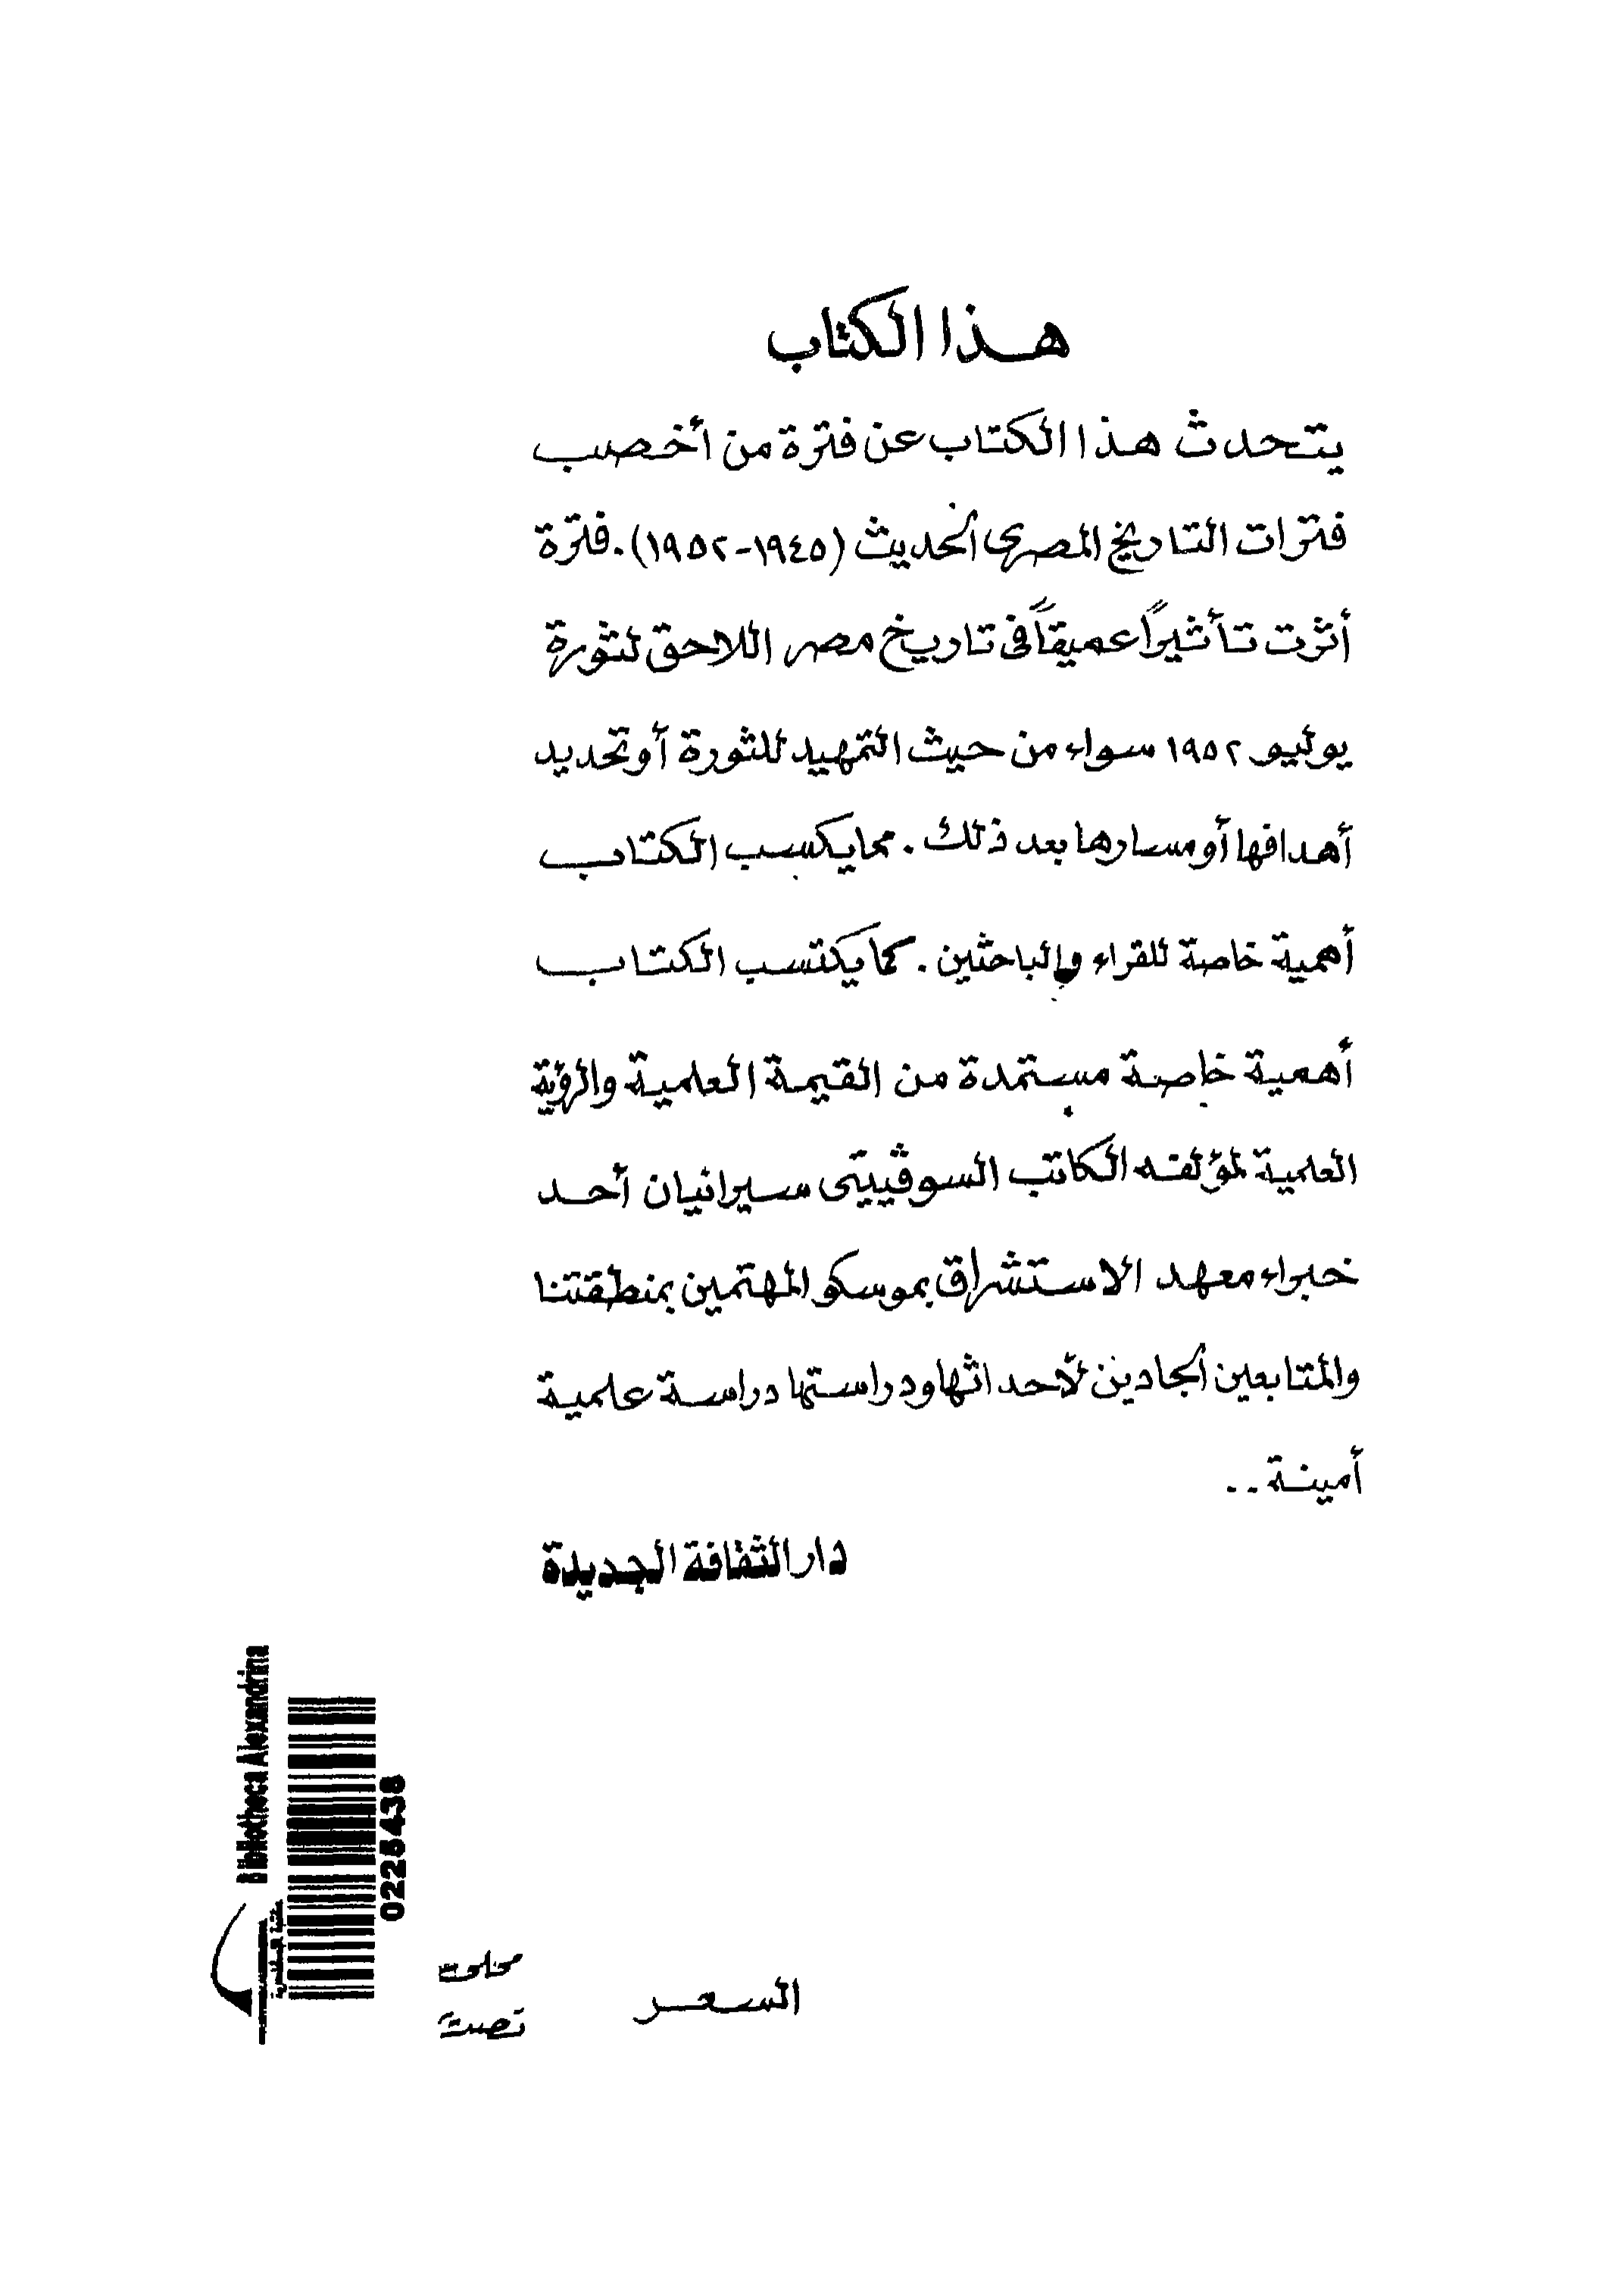 هذا الكتاب
يتحدث هذا الكتاب عن فترة من أخصب
فترات التاريخ المصرى الحديث (١٩٤٥-١٩٥٢). فترة
أثرت تأثيراً عميقاً فى تاريخ مصر اللاحق لثورة
يوليو ١٩٥٢ سواء من حيث التمهيد للثورة أو تحديد
أهدافها أو مسارها بعد ذلك. مما يكسب الكتاب
أهمية خاصة للقراء والباحثين. كما يكتسب الكتاب
أهمية خاصة مستمدة من القيمة العلمية والرؤية
العلمية لمؤلفه الكاتب السوڤييتى سيرانيان أحد
خبراء معهد الاستشراق بموسكو المهتمين بمنطقتنا
والمتابعين الجادين لأحداثها ودراستها دراسة علمية
أمينة..
دار الثقافة الجديدة
Bibliotheca Alexandrina
مكتبة الإسكندرية
0225438
السعر